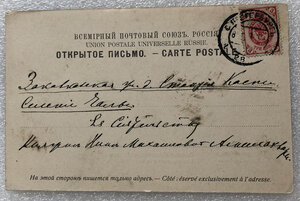 ВСЕМІРНЫЙ ПОЧТОВЫЙ СОЮЗЪ. РОССІЯ.
UNION POSTALE UNIVERSELLE RUSSIE.
ОТКРЫТОЕ ПИСЬМО. — CARTE POSTALE
Закавказская ж. д. Станція Каспи
Селеніе
Ея Сіятельству
Княгинѣ Нинѣ
На этой сторонѣ пишется только адресъ. — Côté réservé exclusivement à l'adresse.